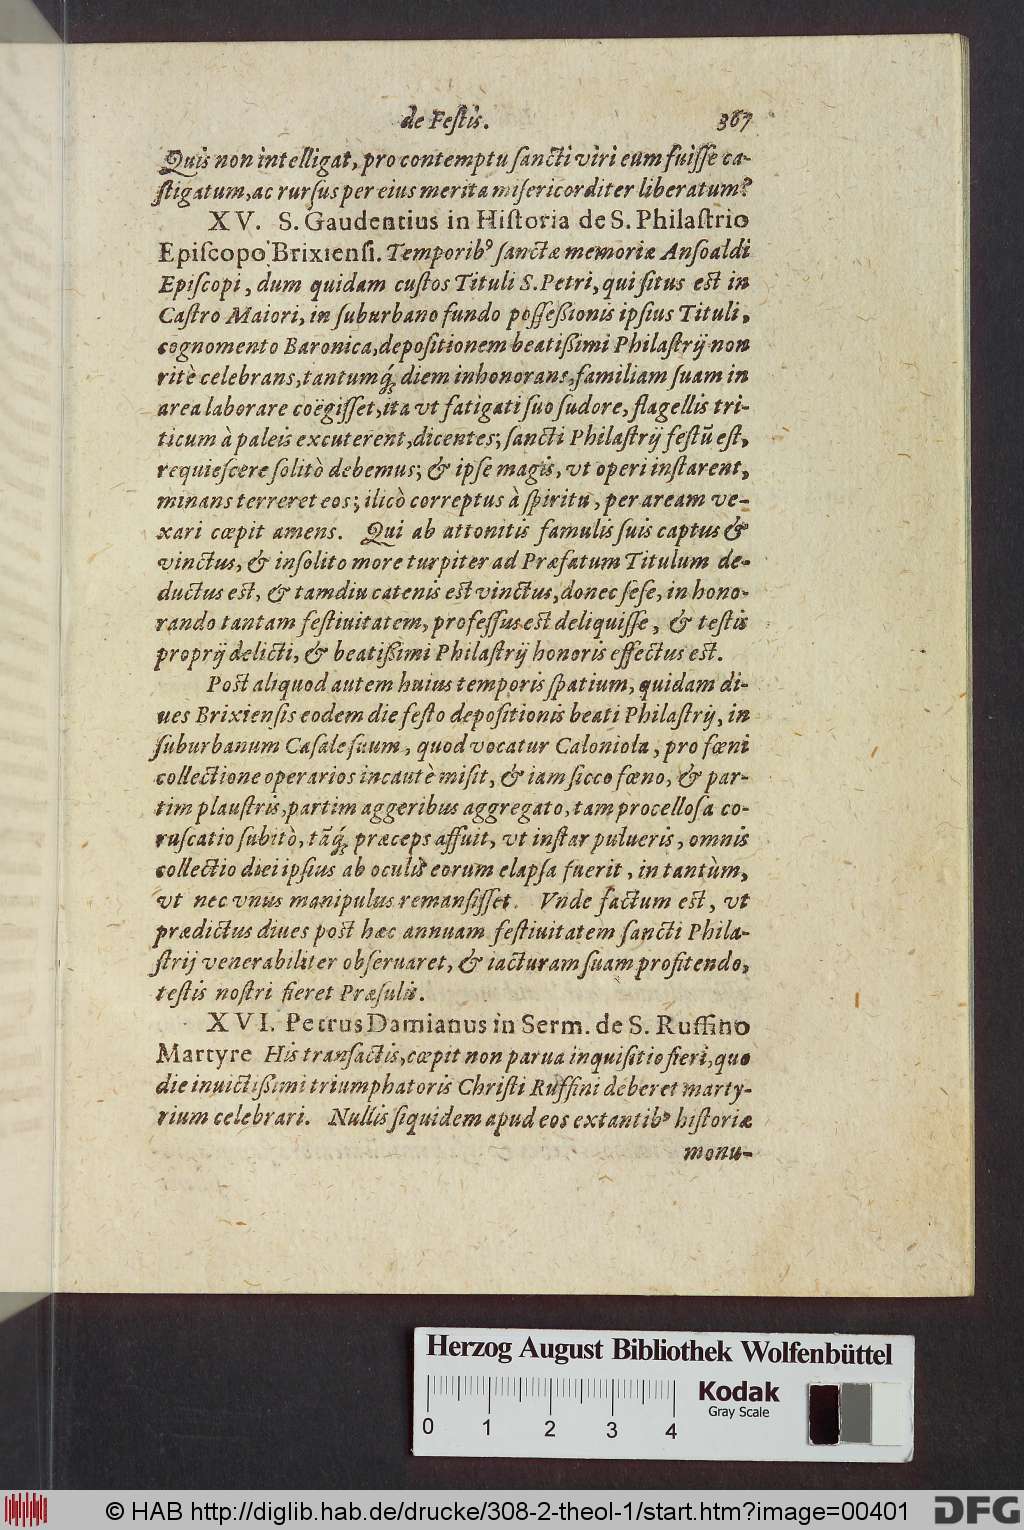 de Feſtis. 367
Quis non intelligat, pro contemptu ſancti viri eum fuiſſe ca-
ſtigatum, ac rurſus per eius merita miſericorditer liberatum?
XV. S. Gaudentius in Hiſtoria de S. Philaſtrio
Epiſcopo Brixienſi. Temporibꝰ ſanctæ memoriæ Anſoaldi
Epiſcopi, dum quidam cuſtos Tituli S. Petri, qui ſitus est in
Caſtro Maiori, in ſuburbano fundo poſſeßionis ipſius Tituli,
cognomento Baronica, depoſitionem beatißimi Philaſtrij non
ritè celebrans, tantumq́; diem inhonorans, familiam ſuam in
area laborare coëgiſſet, ita vt fatigati ſuo ſudore, flagellis tri-
ticum à paleis excuterent, dicentes; ſancti Philaſtrij feſtū eſt,
requieſcere ſolitò debemus; & ipſe magis, vt operi inſtarent,
minans terreret eos; ilicò correptus à ſpiritu, per aream ve-
xari cœpit amens. Qui ab attonitis famulis ſuis captus &
vinctus, & inſolito more turpiter ad Præfatum Titulum de-
ductus est, & tamdiu catenis est vinctus, donec ſeſe, in hono-
rando tantam feſtiuitatem, profeſſus est deliquiſſe, & teſtis
proprij delicti, & beatißimi Philaſtrij honoris effectus est.
Post aliquod autem huius temporis ſpatium, quidam di-
ues Brixienſis eodem die feſto depoſitionis beati Philaſtrij, in
ſuburbanum Caſale ſuum, quod vocatur Caloniola, pro fœni
collectione operarios incautè miſit, & iam ſicco fœno, & par-
tim plauſtris, partim aggeribus aggregato, tam procelloſa co-
ruſcatio ſubitò, tāq́; præceps affuit, vt inſtar pulueris, omnis
collectio diei ipſius ab oculis eorum elapſa fuerit, in tantùm,
vt nec vnus manipulus remanſiſſet. Vnde factum est, vt
prædictus diues post hæc annuam feſtiuitatem ſancti Phila-
ſtrij venerabiliter obſeruaret, & iacturam ſuam profitendo,
teſtis noſtri fieret Præſulis.
XVI. Petrus Damianus in Serm. de S. Ruffino
Martyre His tranſactis, cœpit non parua inquiſitio fieri, quo
die inuictißimi triumphatoris Chriſti Ruffini deberet marty-
rium celebrari. Nullis ſiquidem apud eos extantibꝰ hiſtoriæ
monu-
Herzog August Bibliothek Wolfenbüttel
Kodak
Gray Scale
0 1 2 3 4
© HAB http://diglib.hab.de/drucke/308-2-theol-1/start.htm?image=00401
DFG